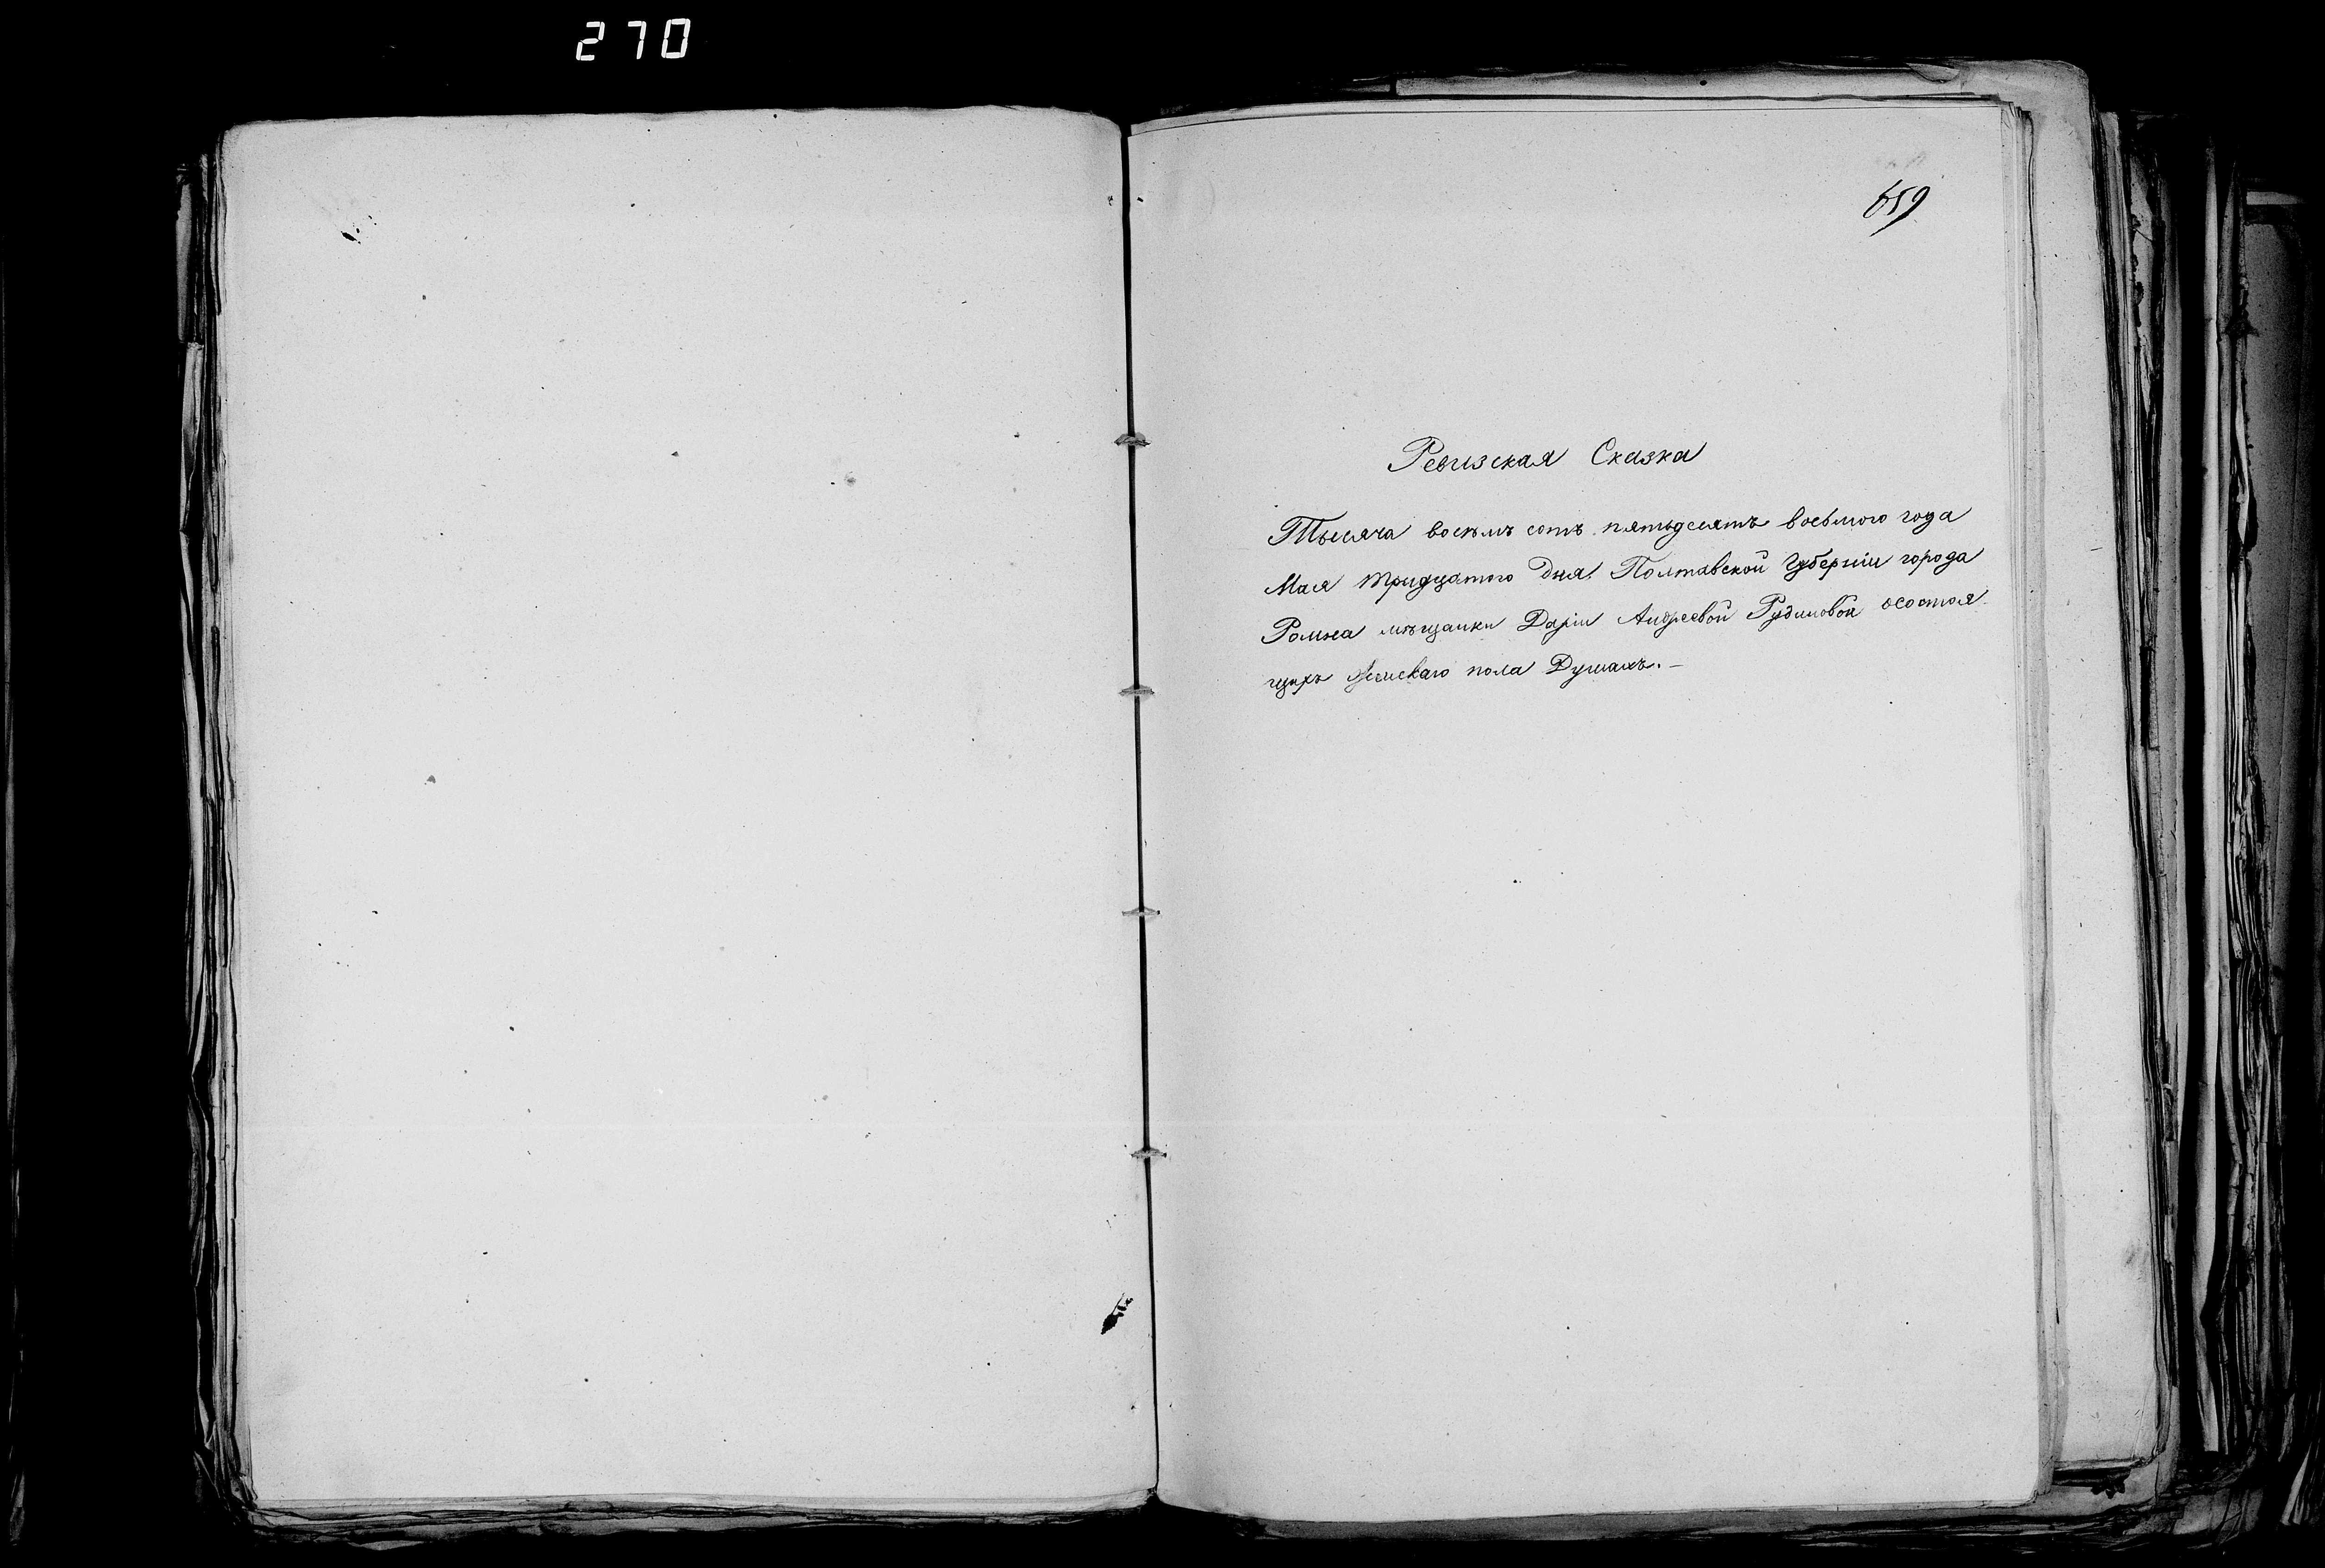 270
659
Ревизская Сказка
Тысяча восемь сотъ пятьдесятъ восьмого года
Мая тридцатого дня Полтавской Губерніи города
Ромна мѣщанки Даріи Андреевой Рудиковой осостоя-
щихъ женскаго пола Душахъ.-